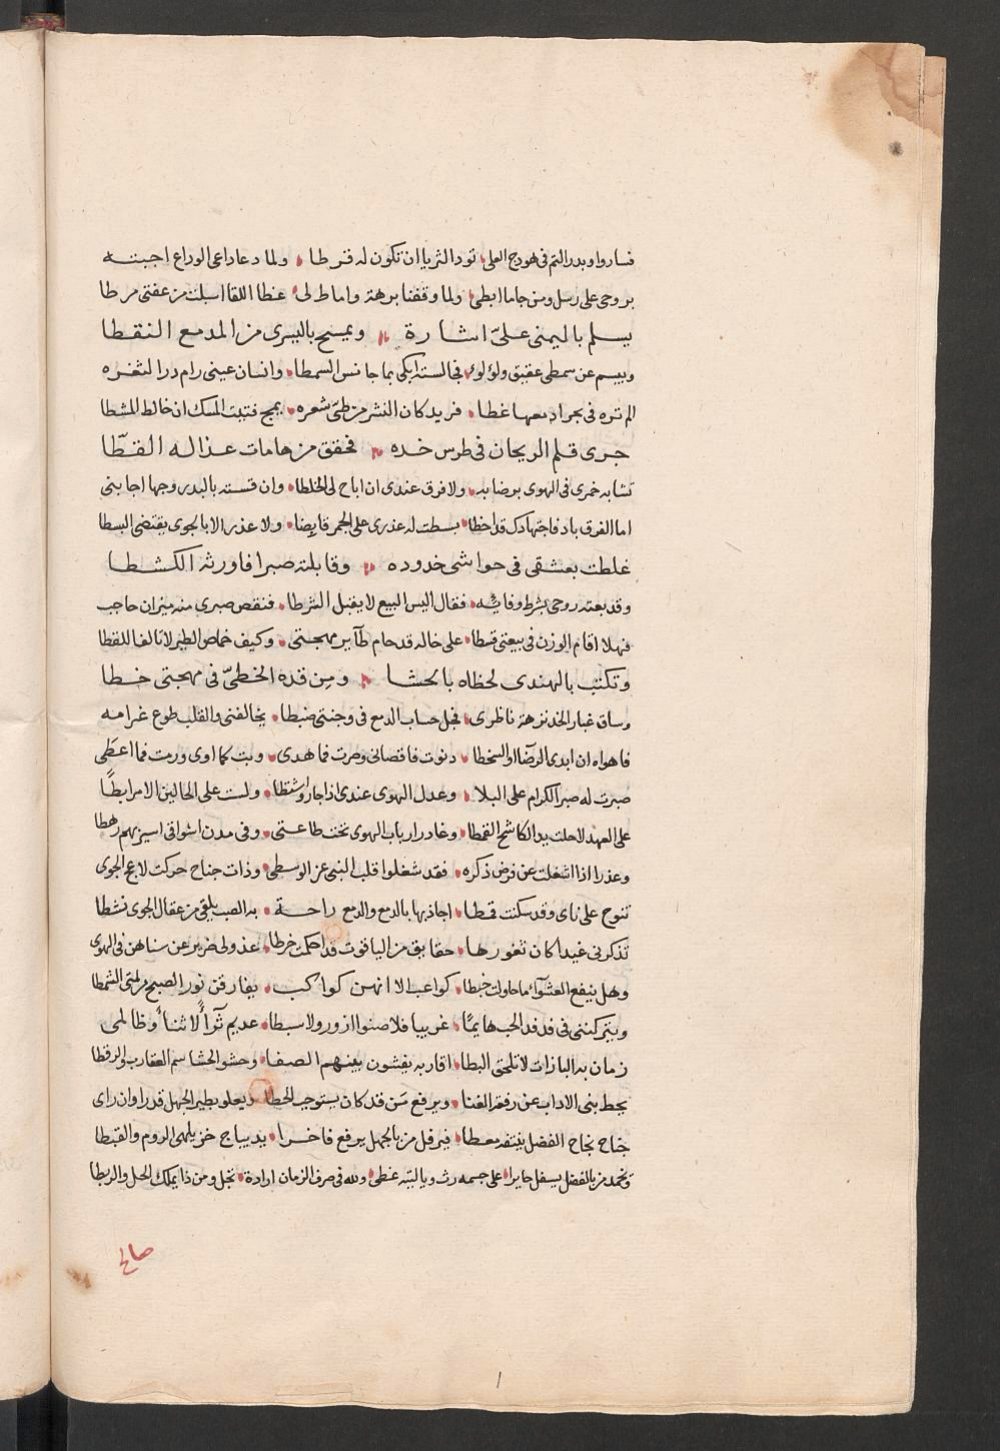 فساروا وبدر التم فى هودج العلى تود الثريا ان تكون له قرطا ولما دعا داعى الوداع اجبته
بروحى على رسل ومن جاما ابطى ولما وقفنا برهة واماط لى غطا اللقا اسبلت من عفتى مرطا
يسلم باليمنى علىّ اشارة ويمسح باليسرى من المدمع النقطا
ويبسم عن سمطى عقيق ولؤلوء فجالسته ابكى بما جانس السمطا وانسان عينى رام در الثغره
الم تره فى بحر ادمعها غطا فريد كان النشر من طىّ شعره يمج فتيت المسك ان خالط المشطا
جرى قلم الريحان فى طرس خده فحقق من هامات عذاله القطّا
تشابه خمرى فى الهوى برضابه ولا فرق عندى ان اباح لى الخلطا وان قسته بالبدر وجها اجابنى
اما الفرق باد فاجتهادك قد اخطا بسطت له عذرى على الجمر قابضا ولا عذر الا بالجوى يقتضى البسطا
غلطت بعشقى فى حواشى خدوده وقابلته صبرا فاورثه الكشطا
وقد بعته روحى بشرط وفائه فقال اليس البيع لا يقبل الشرطا فنقص صبرى منه ميزان حاجب
فهلا اقام الوزن فى بيعتى قسطا على خاله قد حام طآير مهجتى وكيف خماص الطير لا تالف اللقطا
وتكتب بالهندى لحظاه بالحشا ومن قده الخطىّ فى مهجتى خطا
وساق غبار الخد نزهة ناظرى فجل حساب الدمع فى وجنتى ضبطا يخالفنى والقلب طوع غرامه
فاهواه ان ابدى الرضآ او السخطا دنوت فاقصانى وصرت فما هدى وبت كما اوى ورمت فما اعطى
صبرت له صبر الكرام على البلا وعدل الهوى عندى اذا جار واشتطا ولست على الحالين الا مرابطًا
على العهد لا حلت يد الكاشح القمطا وغادر ارباب الهوى تحت طاعتى وفى مدن اشواقى اسيرهم رهطا
وعذرا اذا اشغلت عن فرض ذكره فقد شغلوا قلب النبى عن الوسطى وذات جناح حركت لاعج الجوى
تنوح على ناى وقد سكنت قمطا اجاذبها بالدمع والدمع راحة به الصب يلقى من عقال الجوى نشطا
تذكرنى غيدا كان ثغورها حقايق من الياقوت قد احكمت خرطا عذولى ضرير عن سناهن فى الهوى
وهل ينفع العشوآء ما حاولت خبطا كواعب الا انهن كواكب يفارقن نور الصبح من لمتى الشمطا
ويتركننى فى فدفد الحب هايمًا غريبا فلا صنوا ازور ولا سبطا عديم ثرآء لا ثناء وظالمى
زمان به البازات لا تلحق البطا اقاربه يفشون بينهم الصفا وحشو الحشا سم العقارب والرقطا
يحط بنى الاداب عن رفعة الغنا ويرفع من قد كان يستوجب الحطا ويعلو بطير الجهل قدرا وان راى
جناح نجاح الفضل ينتفه معطا فيرفل من بالجهل يرفع فاخرا بديباج خز يلهى الروم والقبطا
وتحمد من بالفضل يسفل حايرا على جسمه رث وبالتيه غطى ولله فى صرف الزمان ارادة تجل ومن ذا يملك الحل والربطا
صالح
1